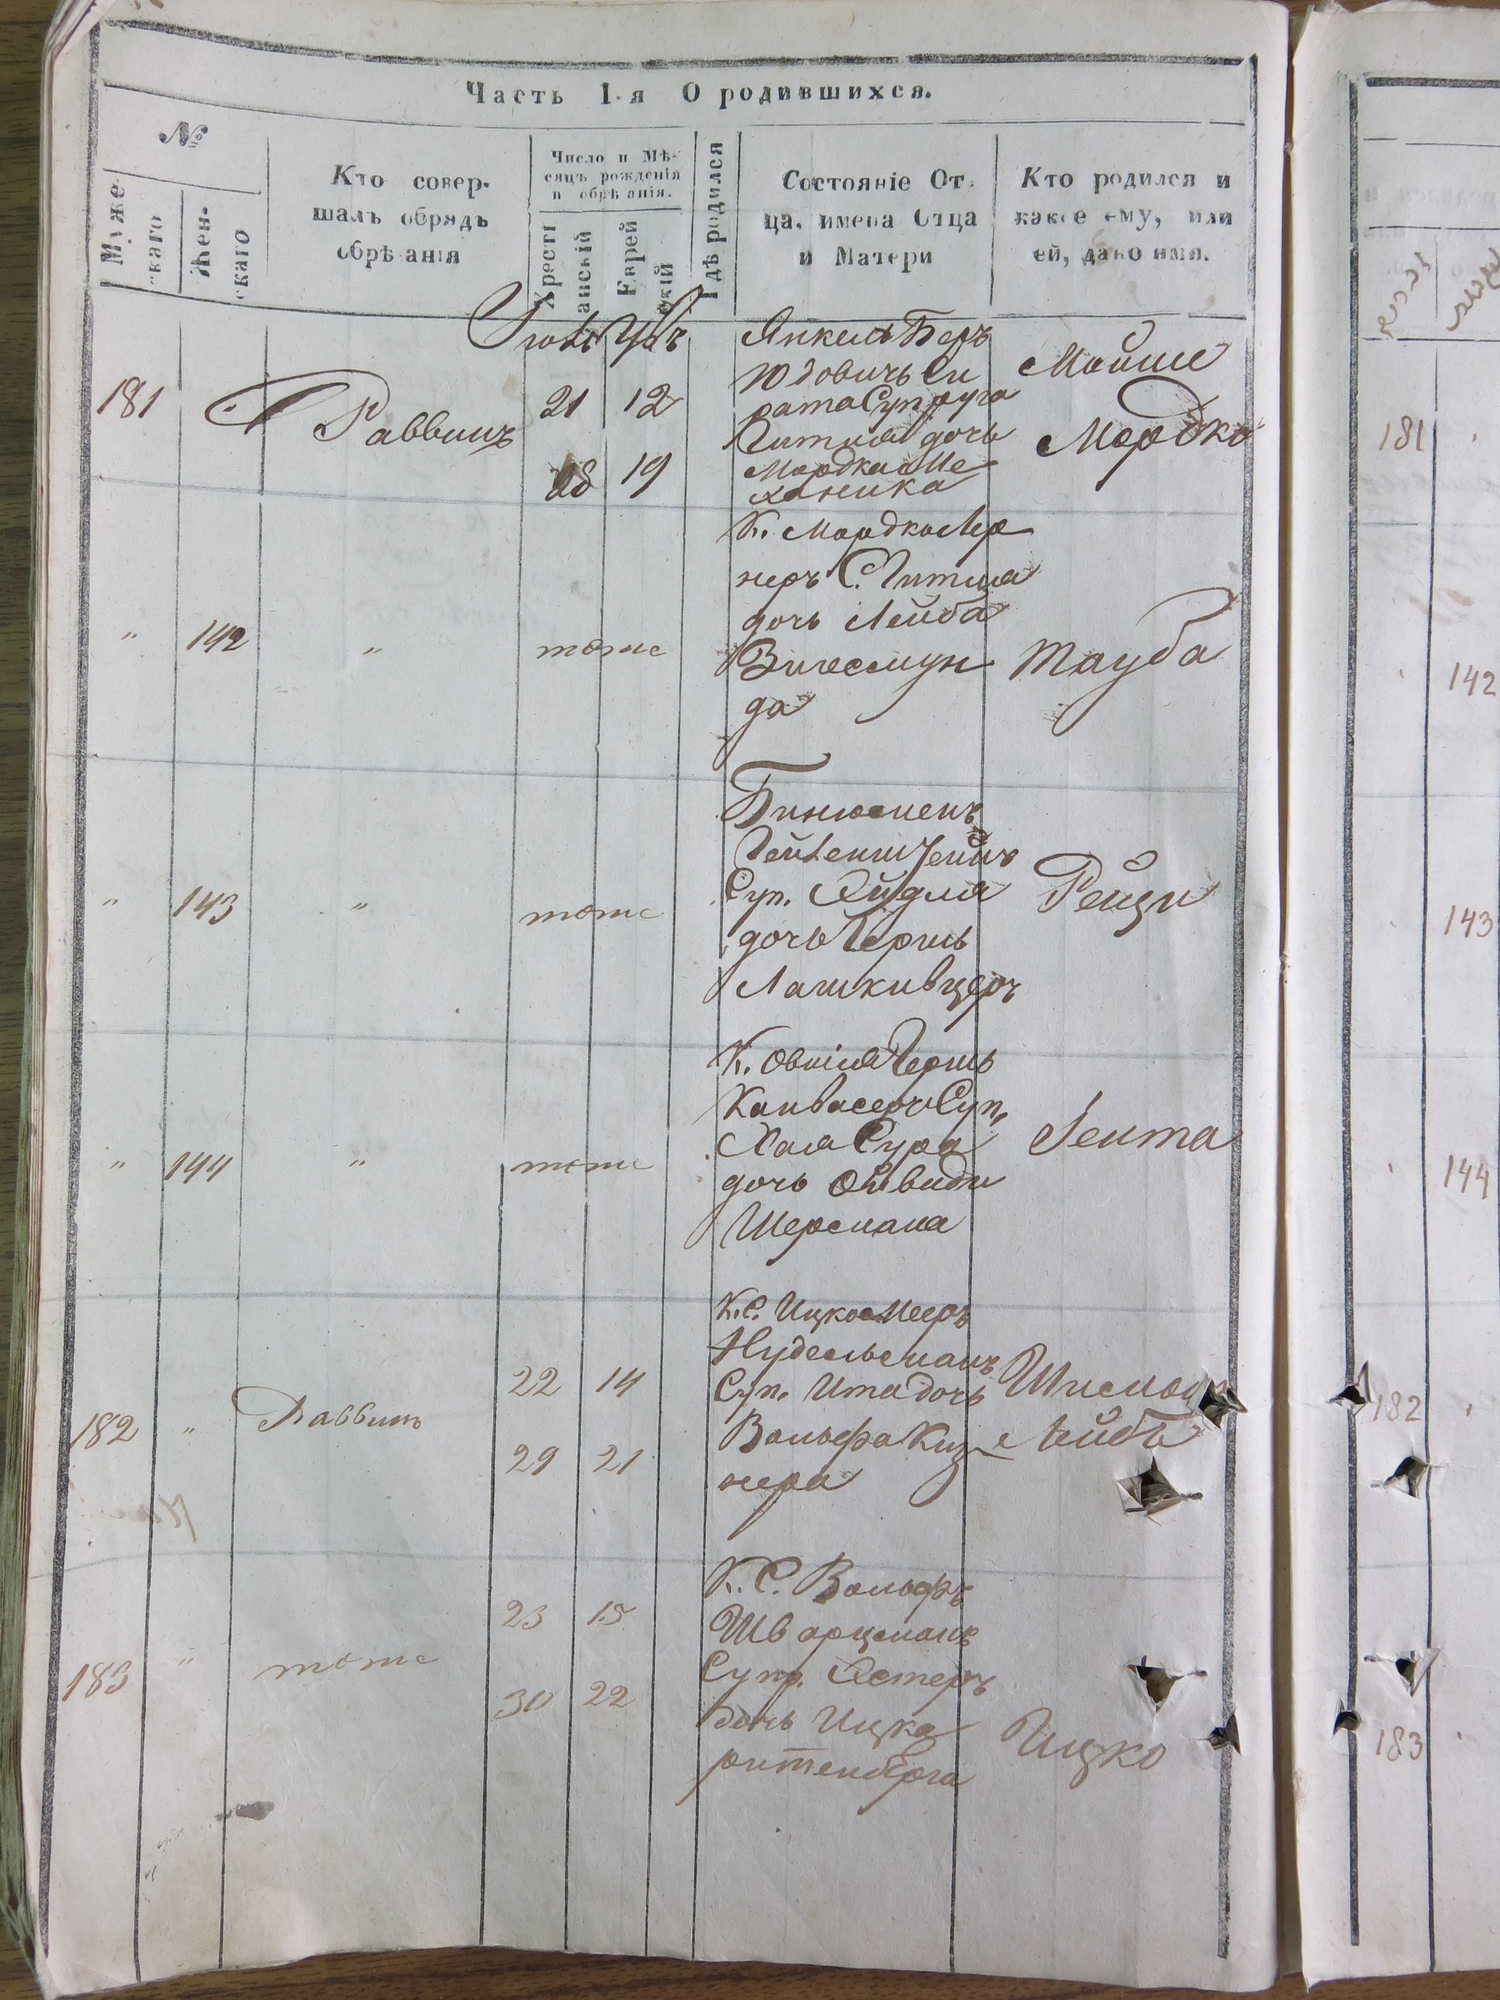 Часть I-я О родившихся.
№
Муже-
скаго
Жен-
скаго
Кто совер-
шалъ обрядъ
обрѣзанія
Число и Мѣ-
сяцъ рожденія
и обрѣзанія.
Хрісті
анскій
Еврей
скій
Гдѣ родился
Состояніе От-
ца, имена Отца
и Матери
Кто родился и
какое ему, или
ей, дано имя.
181
Раввинъ
21 12
28 19
Янкель Беръ
Юдовичъ Си
рота Супруга
дочь
Мордка Ме
ханика
Мойше
Мордко
" 142 " тоже
К. Мордко Лер
неръ С.
дочь Лейба
Зигесмун
да
Тауба
" 143 " тоже
Бинюменъ
Суп. Хейдля
дочь Герш
Лашкивцеръ
Рейзи
" 144 " тоже
К. Овшія Герш
Канвасеръ Суп.
Хая Сура
дочь
Шермана
Гента
182 " Раввинъ
22 14
29 21
К. С. Ицко Мееръ
Нудельманъ
Суп. Ита дочь
Вольфа Киж
нера
Лейбъ
183 " тоже
23 15
30 22
К. С. Вольфъ
Шварцманъ
Супр. Эстеръ
дочь Ицка
ритенберга
Ицко
181
142
143
144
182
183